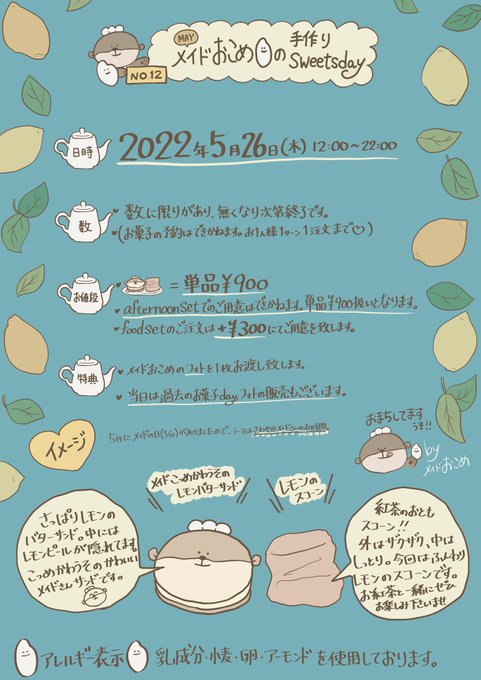 MAY
メイドおこめの 手作り
Sweetsday
NO.12
日時
2022年5月26日(木) 12:00~22:00
数
♥数に限りがあり、無くなり次第終了です。
(お菓子の予約はできかねます。お1人様1ターン1注文まで♡)
お値段
♥ = 単品¥900
♥afternoonsetでのご用意はできかねます。単品¥900扱いとなります。
♥foodsetのご注文は+¥300にてご用意を致します。
特典
♥メイドおこめのフォトを1枚お渡し致します。
♥当日は過去のお菓子dayフォトの販売もございます。
5月にメイドの日(5/10)がありましたので、テーマはさわやかメイドさんのお時間。
イメージ
おまちしてます
うそ!!
by
メイドおこめ
メイドこつめかわうその
レモンバターサンド
レモンの
スコーン
さっぱりレモンの
バターサンド。中には
レモンピールが隠れてます。
こつめかわうその かわいい
メイドさんサンドです。
紅茶のおとも
スコーン!!
外はザクザク、中は
しっとり。今回はふんわり
レモンのスコーンです。
お紅茶と一緒にぜひ
お楽しみくださいませ
アレルギー表示 乳成分・小麦・卵・アーモンド を使用しております。